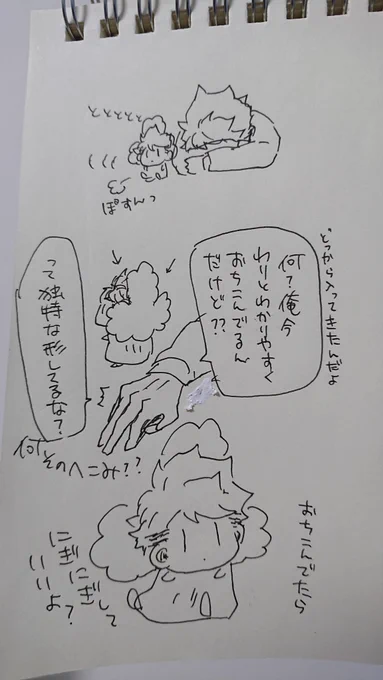 トトトトト
ぽすんっ
どっから入ってきたんだよ
何?俺今
わりとわかりやすく
おちこんでるん
だけど??
って独特な形してるな?
何そのへこみ??
おちこんでたら
にぎにぎして
いいよ?